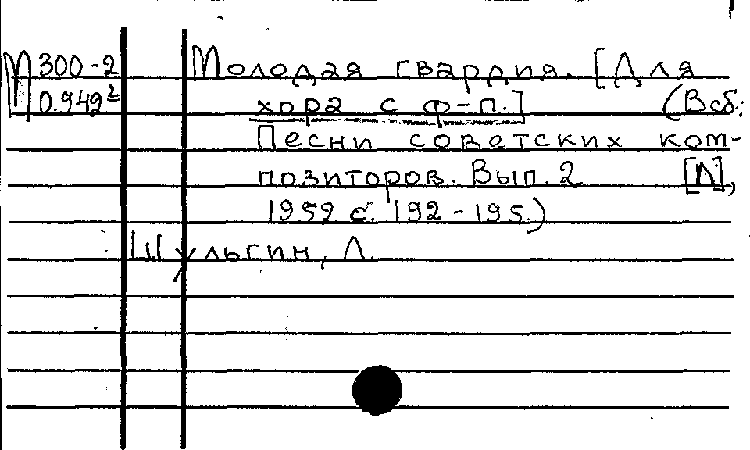 М 300-2 Молодая гвардия. [Для
0.949² хора с ф-п.] (В сб:
Песни советских ком-
позиторов. Вып. 2 [Л],
1952 с. 192-195.)
Шульгин, Л.